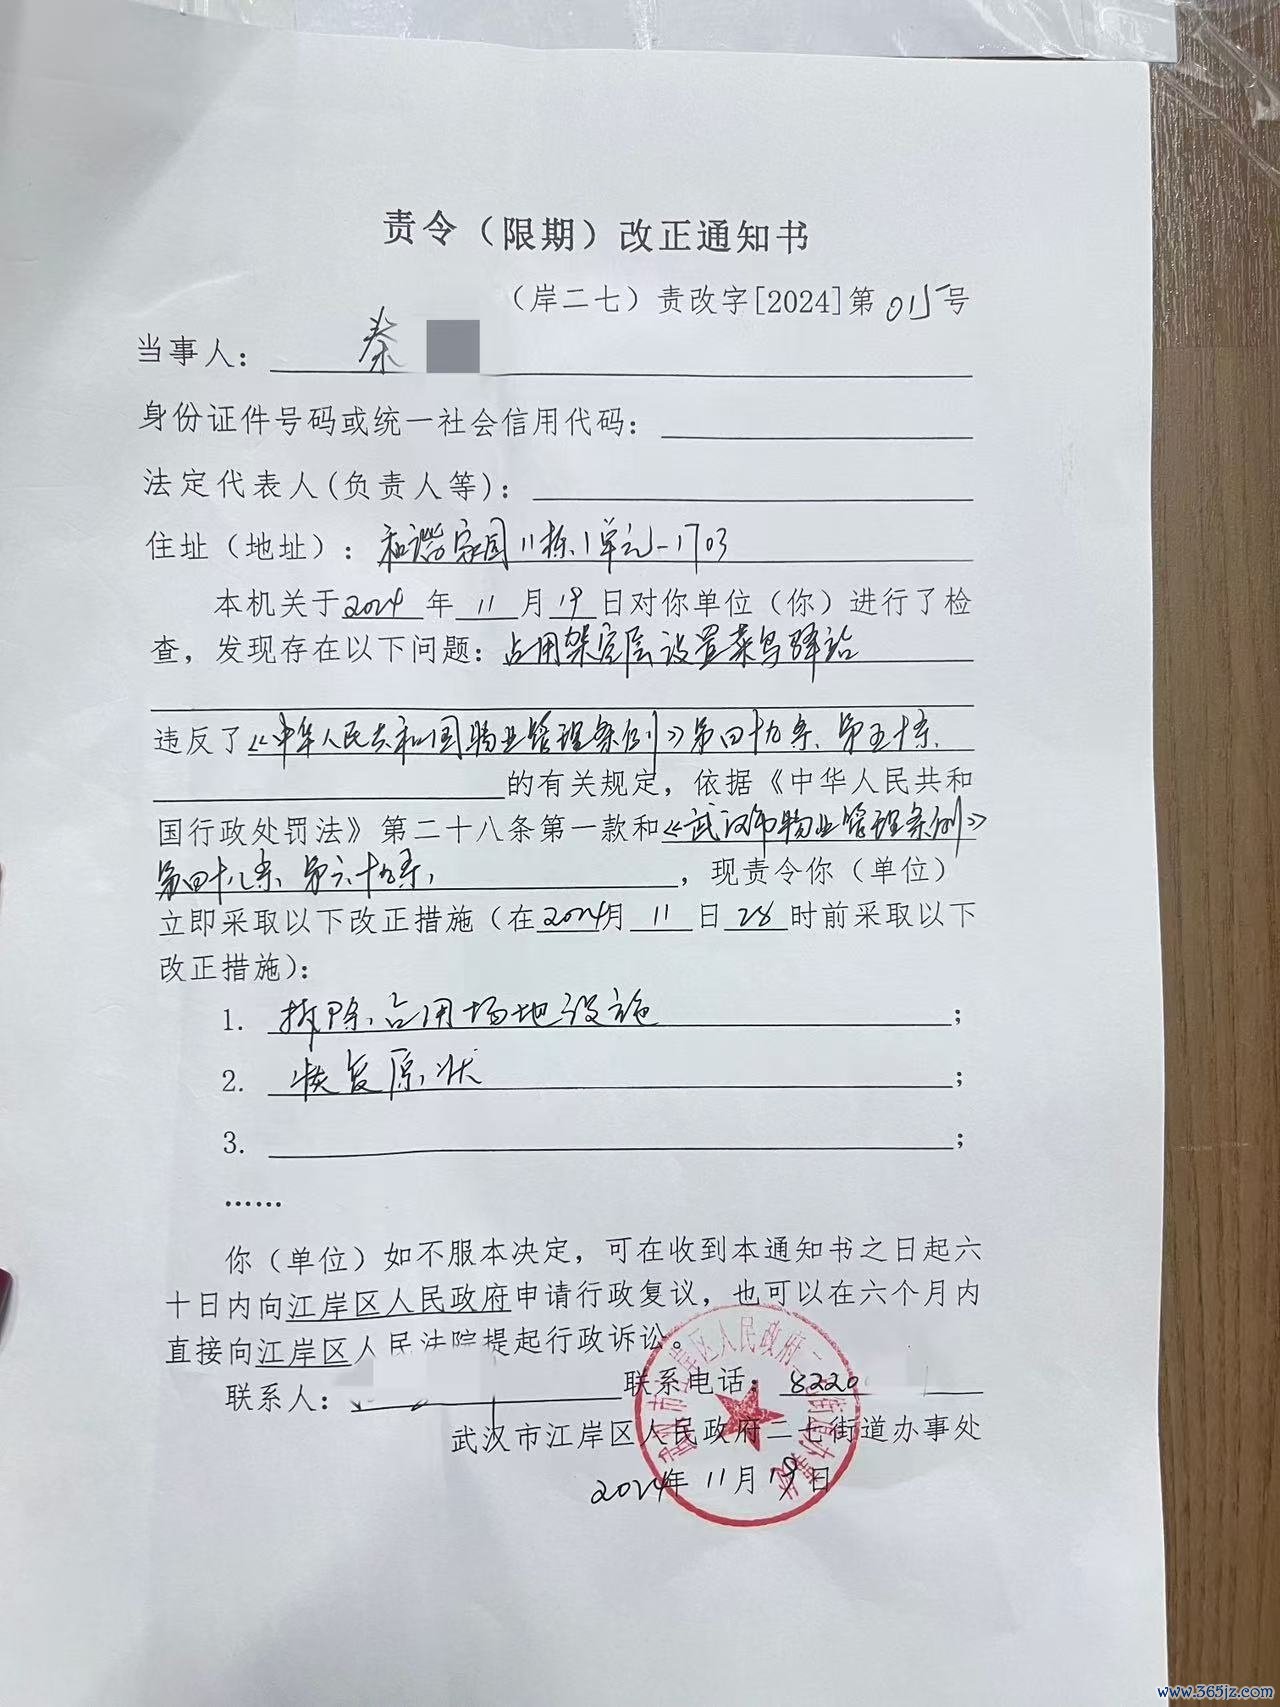 责令（限期）改正通知书
（岸二七）责改字[2024]第015号
当事人：秦
身份证件号码或统一社会信用代码：
法定代表人(负责人等)：
住址（地址）：和谐家园11栋1单元-1703
本机关于2024年11月19日对你单位（你）进行了检
查，发现存在以下问题：占用架空层设置菜鸟驿站
违反了《中华人民共和国物业管理条例》第四十九条、第五十条、
的有关规定，依据《中华人民共和
国行政处罚法》第二十八条第一款和《武汉市物业管理条例》
第四十八条、第六十九条，，现责令你（单位）
立即采取以下改正措施（在2024月11日28时前采取以下
改正措施）：
1. 拆除占用场地设施；
2. 恢复原状；
3. ；
……
你（单位）如不服本决定，可在收到本通知书之日起六
十日内向江岸区人民政府申请行政复议，也可以在六个月内
直接向江岸区人民法院提起行政诉讼。
联系人： 联系电话：8220
武汉市江岸区人民政府二七街道办事处
2024年11月19日
武汉市江岸区人民政府二七街道办事处
www.365jz.com